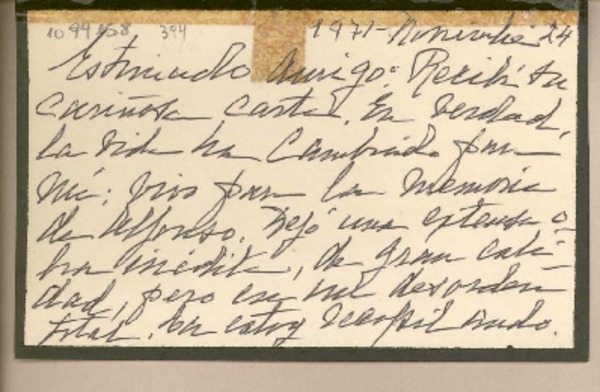 1094158 394
1971 - Noviembre 24
Estimado amigo: Recibí su
cariñosa carta. En verdad,
la vida ha cambiado para
mí: vivo para la memoria
de Alfonso. Dejó una extensa o-
bra inédita, de gran cali-
dad, pero en un desorden
total. La estoy recopilando.